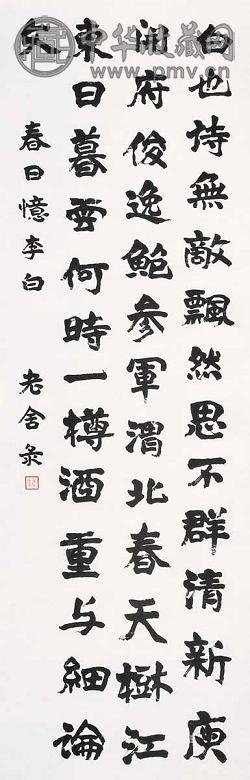 白也詩無敵飄然思不群清新庾
開府俊逸鮑參軍渭北春天樹江
東日暮雲何時一樽酒重与細論
文
春日憶李白 老舍彔
中华收藏网
www.pmv.cn